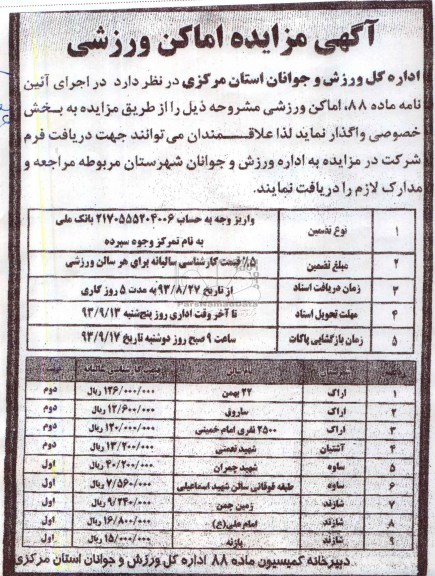 آگهی مزایده اماکن ورزشی
اداره کل ورزش و جوانان استان مرکزی در نظر دارد در اجرای آئین
نامه ماده ۸۸، اماکن ورزشی مشروحه ذیل را از طریق مزایده به بخش
خصوصی واگذار نماید لذا علاقمندان می توانند جهت دریافت فرم
شرکت در مزایده به اداره ورزش و جوانان شهرستان مربوطه مراجعه و
مدارک لازم را دریافت نمایند.
۱ نوع تضمین واریز وجه به حساب ۲۱۷۰۵۵۵۲۰۴۰۰۶ بانک ملی
به نام تمرکز وجوه سپرده
۲ مبلغ تضمین ۵٪ قیمت کارشناسی سالیانه برای هر سالن ورزشی
۳ زمان دریافت اسناد از تاریخ ۹۳/۸/۲۷ به مدت ۵ روز کاری
۴ مهلت تحویل اسناد تا آخر وقت اداری روز پنج‌شنبه ۹۳/۹/۱۳
۵ زمان بازگشایی پاکات ساعت ۹ صبح روز دوشنبه تاریخ ۹۳/۹/۱۷
ParsNamadData
شهرستان قیمت کارشناسی سالیانه
۱ اراک ۲۲ بهمن ۱۲۶/۰۰۰/۰۰۰ ریال دوم
۲ اراک ساروق ۱۲/۶۰۰/۰۰۰ ریال دوم
۳ اراک ۲۵۰۰ نفری امام خمینی ۱۲۰/۰۰۰/۰۰۰ ریال دوم
۴ آشتیان شهید نعمتی ۱۳/۲۰۰/۰۰۰ ریال دوم
۵ ساوه شهید چمران ۴۰/۲۰۰/۰۰۰ ریال اول
۶ ساوه طبقه فوقانی سالن شهید اسماعیلی ۷/۵۶۰/۰۰۰ ریال اول
۷ شازند زمین چمن ۹/۲۴۰/۰۰۰ ریال اول
۸ شازند امام علی(ع) ۱۶/۸۰۰/۰۰۰ ریال اول
۹ شازند پازنه ۱۵/۰۰۰/۰۰۰ ریال اول
دبیرخانه کمیسیون ماده ۸۸ اداره کل ورزش و جوانان استان مرکزی